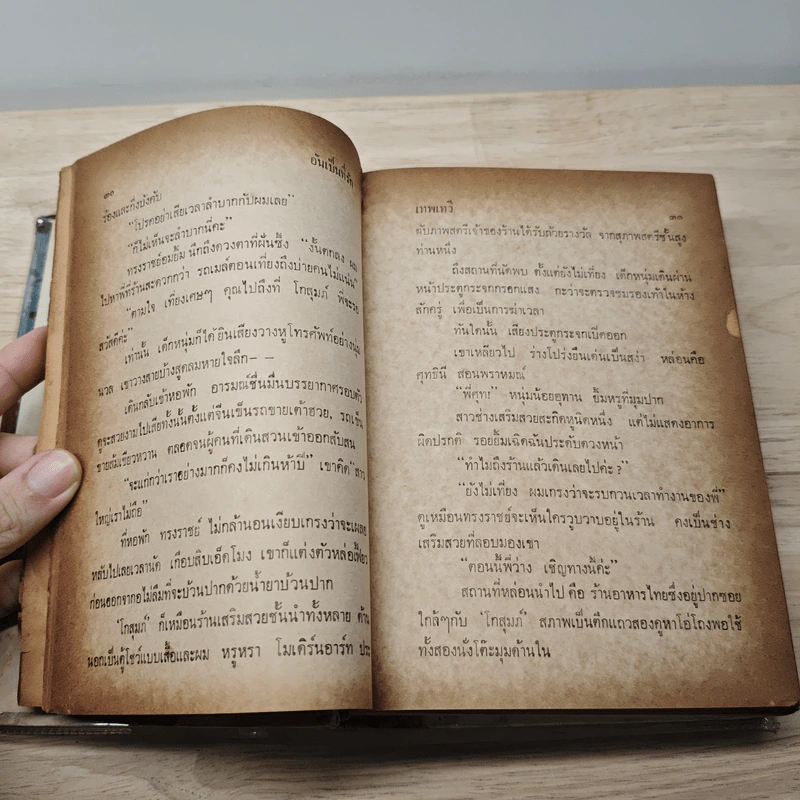 ๓๐
อันเป็นที่รัก
ร้องและกึ่งบังคับ
"โปรดอย่าเสียเวลาลำบากกับผมเลย"
"ก็ไม่เห็นจะลำบากนี่คะ"
ทรงราชย์อมยิ้ม นึกถึงดวงตาที่ผันซึ้ง "งั้นตกลง ผม
ไปหาพี่ที่ร้านสะดวกกว่า รถเมล์ตอนเที่ยงถึงบ่ายคนไม่แน่น"
"ตามใจ เที่ยงเศษๆ คุณไปถึงที่ โกสุมภ์ พี่จะรอ
สวัสดีค่ะ"
เท่านั้น เด็กหนุ่มก็ได้ยินเสียงวางหูโทรศัพท์อย่างนุ่ม
นวล เขาวางสายบ้างสูดลมหายใจลึก— —
เดินกลับเข้าหอพัก อารมณ์ชื่นมื่นบรรยากาศรอบตัว
ดูจะสวยงามไปเสียทั้งนั้นตั้งแต่จีนเข็นรถขายเต้าฮวย, รถเข็น
ขายส้มเขียวหวาน ตลอดจนผู้คนที่เดินสวนเข้าออกสับสน
"จะแก่กว่าเราอย่างมากก็คงไม่เกินห้าปี" เขาคิด "สาว
ใหญ่เราไม่ถือ"
ที่หอพัก ทรงราชย์ ไม่กล้านอนเงียบเกรงว่าจะเผลอ
หลับไปเลยเวลานัด เกือบสิบเอ็ดโมง เขาก็แต่งตัวหล่อเฟี้ยว
ก่อนออกจากอไม่ลืมที่จะบ้วนปากด้วยน้ำยาบ้วนปาก
'โกสุมภ์' ก็เหมือนร้านเสริมสวยชั้นนำทั้งหลาย ด้าน
นอกเป็นตู้โชว์แบบเสื้อและผม หรูหรา โมเดิร์นอาร์ท ประ
เทพเทวี
๓๑
ดับภาพสตรีเจ้าของร้านได้รับถ้วยรางวัล จากสุภาพสตรีชั้นสูง
ท่านหนึ่ง
ถึงสถานที่นัดพบ ตั้งแต่ยังไม่เที่ยง เด็กหนุ่มเดินผ่าน
หน้าประตูกระจกกรอกแสง กะว่าจะตรวจชมรองเท้าในห้าง
สักครู่ เพื่อเป็นการฆ่าเวลา
ทันใดนั้น เสียงประตูกระจกเปิดออก
เขาเหลียวไป ร่างโปร่งยืนเด่นเป็นสง่า หล่อนคือ
ศุทธินี สอนพราหมณ์
"พี่ศุท!" หนุ่มน้อยอุทาน ยิ้มหรูที่มุมปาก
สาวช่างเสริมสวยสะกิดหูนิดหนึ่ง แต่ไม่แสดงอาการ
ผิดปรกติ รอยยิ้มเฉิดฉันประดับดวงหน้า
"ทำไม่ถึงร้านแล้วเดินเลยไปคะ ?"
"ยังไม่เที่ยง ผมเกรงว่าจะรบกวนเวลาทำงานของพี่"
ดูเหมือนทรงราชย์จะเห็นใครวูบวาบอยู่ในร้าน คงเป็นช่าง
เสริมสวยที่ลอบมองเขา
"ตอนนี้พี่ว่าง เชิญทางนี้ค่ะ"
สถานที่หล่อนนำไป คือ ร้านอาหารไทยซึ่งอยู่ปากซอย
ใกล้ๆกับ 'โกสุมภ์' สภาพเป็นตึกแถวสองคูหาโอ่โถงพอใช้
ทั้งสองนั่งโต๊ะมุมด้านใน